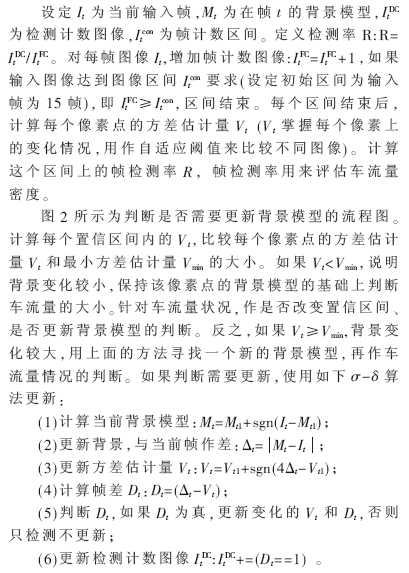 设定 It 为当前输入帧,Mt 为在帧 t 的背景模型,It^DC
为检测计数图像,It^con 为帧计数区间。定义检测率 R:R=
It^DC/It^FC。对每帧图像 It,增加帧计数图像:It^FC=It^FC+1,如果
输入图像达到图像区间 It^con 要求(设定初始区间为输入
帧为 15 帧),即 It^FC≥It^con,区间结束。每个区间结束后,
计算每个像素点的方差估计量 Vt (Vt 掌握每个像素上
的变化情况,用作自适应阈值来比较不同图像)。计算
这个区间上的帧检测率 R, 帧检测率用来评估车流量
密度。
图 2 所示为判断是否需要更新背景模型的流程图。
计算每个置信区间内的 Vt,比较每个像素点的方差估计
量 Vt 和最小方差估计量 Vmin 的大小。如果 Vt<Vmin,说明
背景变化较小,保持该像素点的背景模型的基础上判断
车流量的大小。针对车流量状况,作是否改变置信区间、
是否更新背景模型的判断。反之,如果 Vt≥Vmin,背景变
化较大,用上面的方法寻找一个新的背景模型,再作车
流量情况的判断。如果判断需要更新,使用如下 σ-δ 算
法更新:
(1)计算当前背景模型:Mt=Mt1+sgn(It-Mt1);
(2)更新背景,与当前帧作差:Δt=|Mt-It|;
(3)更新方差估计量 Vt:Vt=Vt1+sgn(4Δt-Vt1);
(4)计算帧差 Dt:Dt=(Δt-Vt);
(5)判断 Dt,如果 Dt 为真,更新变化的 Vt 和 Dt,否则
只检测不更新;
(6)更新检测计数图像 It^DC:It^DC+=(Dt==1) 。